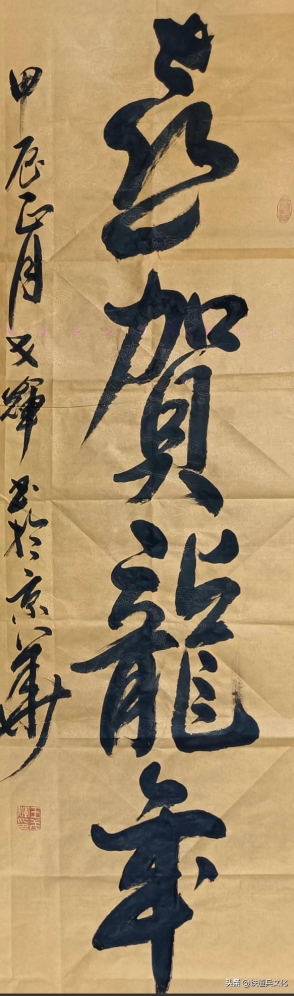 賀龍年
甲辰正月文輝書於京華
头条 @铁道兵文化